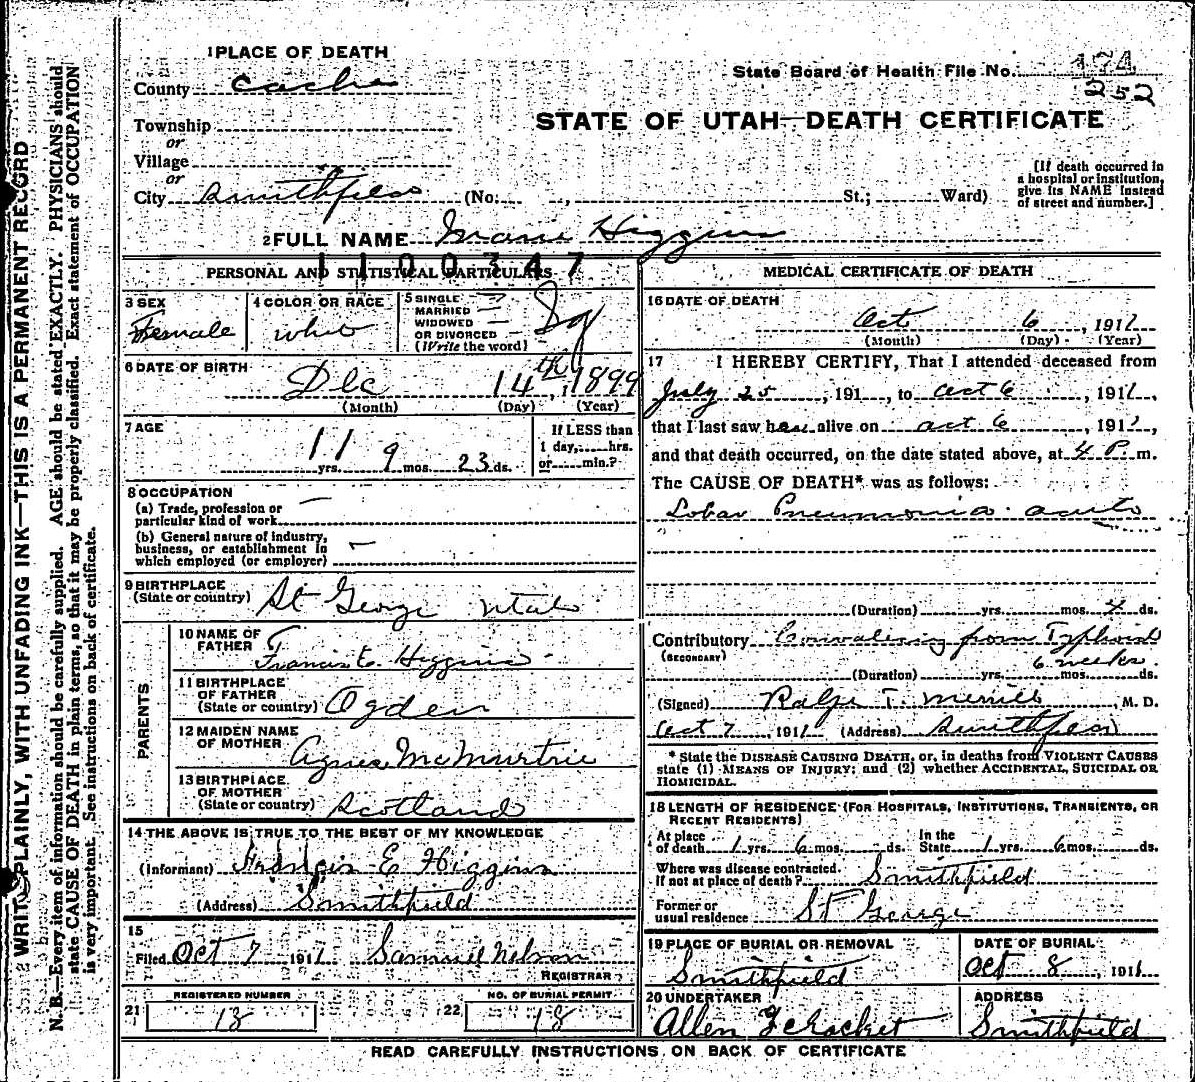 1 PLACE OF DEATH
County Cache
Township
or
Village
or
City Smithfield (No. St.; Ward)
State Board of Health File No. 174
252
STATE OF UTAH—DEATH CERTIFICATE
[If death occurred in
a hospital or institution,
give its NAME instead
of street and number.]
2 FULL NAME Marie Higgins
1100347
PERSONAL AND STATISTICAL PARTICULARS
3 SEX
Female
4 COLOR OR RACE
White
5 SINGLE
MARRIED
WIDOWED
OR DIVORCED
(Write the word)
Sg
6 DATE OF BIRTH
Dec 14th, 1899
(Month) (Day) (Year)
7 AGE
11 yrs. 9 mos. 23 ds.
If LESS than
1 day,.....hrs.
or.....min.?
8 OCCUPATION
(a) Trade, profession or
particular kind of work
(b) General nature of industry,
business, or establishment in
which employed (or employer)
9 BIRTHPLACE
(State or country) St George Utah
PARENTS
10 NAME OF
FATHER
Francis E. Higgins
11 BIRTHPLACE
OF FATHER
(State or country) Ogden
12 MAIDEN NAME
OF MOTHER
Agnes McMurtrie
13 BIRTHPLACE
OF MOTHER
(State or country) Scotland
14 THE ABOVE IS TRUE TO THE BEST OF MY KNOWLEDGE
(Informant) Francis E Higgins
(Address) Smithfield
15
Filed Oct 7 1911 Samuel Nelson
REGISTRAR
21 REGISTERED NUMBER
18
22 NO. OF BURIAL PERMIT
18
MEDICAL CERTIFICATE OF DEATH
16 DATE OF DEATH
Oct 6, 1911
(Month) (Day) (Year)
17 I HEREBY CERTIFY, That I attended deceased from
July 25, 191 , to Oct 6, 1911,
that I last saw her alive on Oct 6, 1911,
and that death occurred, on the date stated above, at 4 P. m.
The CAUSE OF DEATH* was as follows:
Lobar Pneumonia acute
(Duration) yrs. mos. 4 ds.
Contributory Convalescing from Typhoid
(SECONDARY) 6 weeks
(Duration) yrs. mos. ds.
(Signed) Ralph T. Merrill, M. D.
Oct 7, 1911 (Address) Smithfield
* State the DISEASE CAUSING DEATH, or, in deaths from VIOLENT CAUSES
state (1) MEANS OF INJURY; and (2) whether ACCIDENTAL, SUICIDAL OR
HOMICIDAL.
18 LENGTH OF RESIDENCE (FOR HOSPITALS, INSTITUTIONS, TRANSIENTS, OR
RECENT RESIDENTS)
At place
of death 1 yrs. 6 mos. ds.
In the
State 1 yrs. 6 mos. ds.
Where was disease contracted.
If not at place of death? Smithfield
Former or
usual residence St George
19 PLACE OF BURIAL OR REMOVAL
Smithfield
DATE OF BURIAL
Oct 8, 1911
20 UNDERTAKER
Allen
ADDRESS
Smithfield
READ CAREFULLY INSTRUCTIONS ON BACK OF CERTIFICATE
WRITE PLAINLY, WITH UNFADING INK—THIS IS A PERMANENT RECORD
N. B.—Every item of information should be carefully supplied. AGE should be stated EXACTLY. PHYSICIANS should
state CAUSE OF DEATH in plain terms, so that it may be properly classified. Exact statement of OCCUPATION
is very important. See instructions on back of certificate.